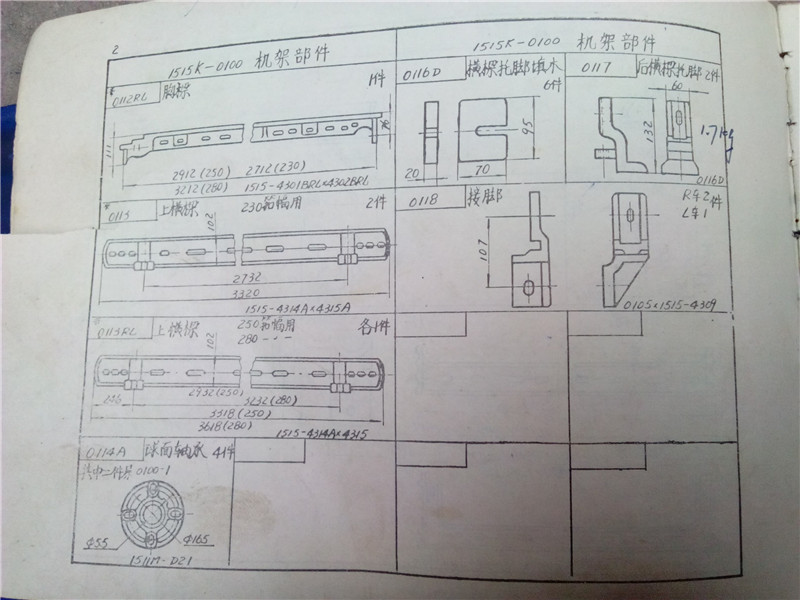 2
1515K-0100 机架部件
0112RL
胸樑
1件
111
2912(250) 2712(230)
3212(280) 1515-4301BRL×4302BRL
0113
上横樑
230筘幅用
2件
102
2732
3320
1515-4314A×4315A
0113RL
上横樑
250筘幅用
280
各1件
102
2932(250)
246
3232(280)
3318(250)
3618(280)
1515-4314A×4315
0114A
球面轴承
4件
0100-1
φ55
φ165
1511M-D21
1515K-0100 机架部件
0116D
横樑托脚填木
6件
95
20
70
0117
后横樑托脚
2件
60
132
1.7kg
0116D
0118
接脚
R车2件
L车1
107
0105×1515-4309